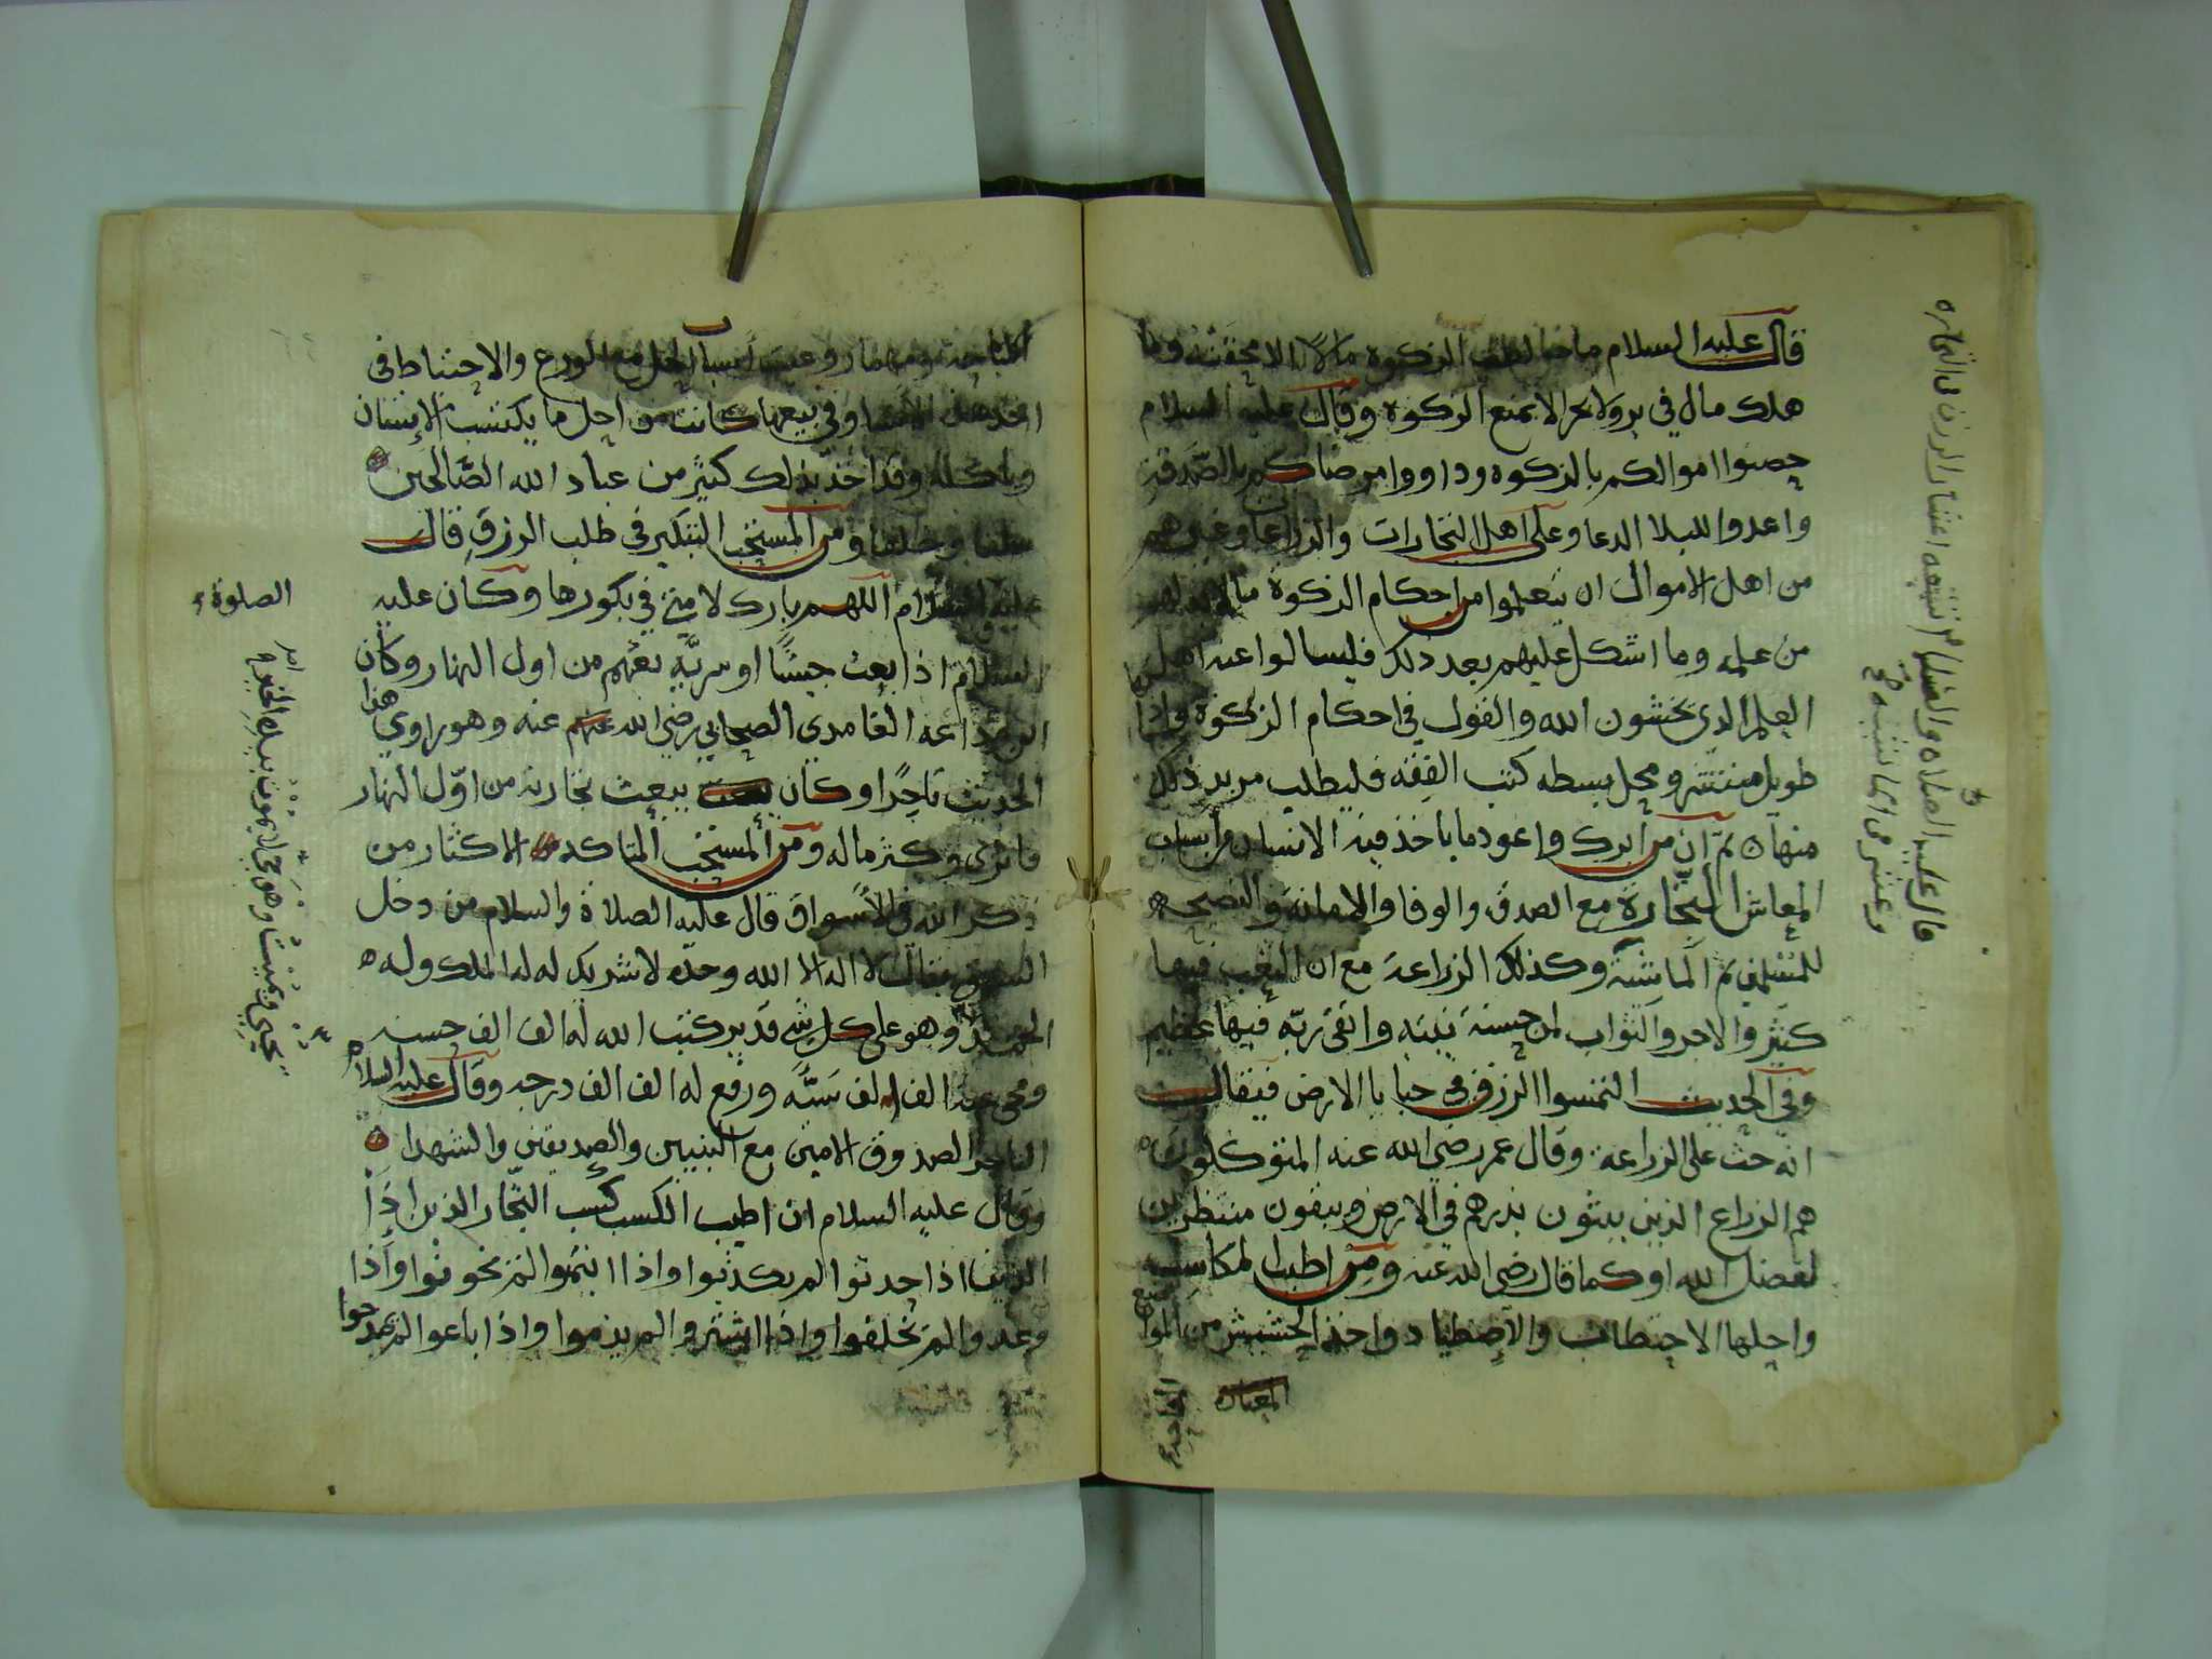 قال عليه السلام ما خالطت الزكوة مالا الا محقته وما
هلك مال في بر ولا بحر الا بمنع الزكوة وقال عليه السلام
حصنوا اموالكم بالزكوة وداووا مرضاكم بالصدقة
واعدوا للبلا الدعا وعلى اهل التجارات والزراعا وغيرهم
من اهل الاموال ان يتعلموا من احكام الزكوة ما لا بد لهم
من علمه وما اشكل عليهم بعد ذلك فليسالوا عنه اهل
العلم الذي يخشون الله والقول في احكام الزكوة
طويل منتشر ومحل بسطه كتب الفقه فليطلب مريد ذلك
منها ثم ان من ابرك واعود ما ياخذ فيه الانسان من اسباب
المعاش التجارة مع الصدق والوفا والامانة والنصيحه
للمسلمين ثم الماشية وكذلك الزراعة مع ان التعب فيها
كثير والاجر والثواب لمن حسنة نيته واتقى ربه فيها عظيم
وفي الحديث التمسوا الرزق في خبايا الارض فيقال
انه حث على الزراعة وقال عمر رضي الله عنه المتوكلون
هم الزراع الذين يبثون بذرهم في الارض ويبقون منتظرين
لفضل الله او كما قال رضي الله عنه ومن اطيب المكاسب
واحلها الاحتطاب والاصطياد واخذ الحشيش من المواضع
المباحة
قال عليه الصلاه والسلام تسعه اعشار الرزق في التجاره
وعشر في الماشيه
المباحة ومهما روعيت اسباب الحل مع الورع والاحتياط في
اخذ هذه الاشيا وفي بيعها كانت من احل ما يكتسب الانسان
وياكله وقد اخذ بذلك كثير من عباد الله الصالحين
سلفا وخلفا ومن المستحب التبكير في طلب الرزق قال
عليه السلام اللهم بارك لامتي في بكورها وكان عليه
الصلوة
السلام اذا بعث جيشا او سرية بعثهم من اول النهار وكان
الغامدي الصحابي رضي الله عنهم عنه وهو راوي هذا
الحديث تاجرا وكان يبعث تجارته من اول النهار
فاثرى وكثر ماله ومن المستحب المتاكد الاكثار من
ذكر الله في الاسواق قال عليه الصلاة والسلام من دخل
السوق فقال لا اله الا الله وحده لا شريك له له الملك وله
الحمد وهو على كل شي قدير كتب الله له الف الف حسنه
يحيي ويميت وهو حي لا يموت بيده الخير
ومحى عنه الف الف سية ورفع له الف الف درجه وقال عليه السلام
التاجر الصدوق الامين مع النبيين والصديقين والشهدا
وقال عليه السلام ان اطيب الكسب كسب التجار الذين اذا
اذا حدثوا لم يكذبوا واذا ائتمنوا لم يخونوا واذا
وعدوا لم يخلفوا واذا اشتروا لم يذموا واذا باعوا لم يمدحوا